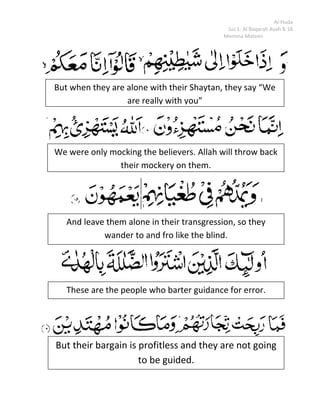 Al Huda
Juz 1- Al Baqarah Ayah 8-16
Memona Motomi
وَاِذَا خَلَوْا اِلٰى شَيٰطِيْنِهِمْ قَالُوْٓا اِنَّا مَعَكُمْ
But when they are alone with their Shaytan, they say “We
are really with you”
اِنَّمَا نَحْنُ مُسْتَهْزِءُوْنَ اَللّٰهُ يَسْتَهْزِئُ بِهِمْ
We were only mocking the believers. Allah will throw back
their mockery on them.
وَيَمُدُّهُمْ فِيْ طُغْيَانِهِمْ يَعْمَهُوْنَ
And leave them alone in their transgression, so they
wander to and fro like the blind.
اُولٰٓئِكَ الَّذِيْنَ اشْتَرَوُا الضَّلٰلَةَ بِالْهُدٰى
These are the people who barter guidance for error.
فَمَا رَبِحَتْ تِّجَارَتُهُمْ وَمَا كَانُوْا مُهْتَدِيْنَ
But their bargain is profitless and they are not going
to be guided.